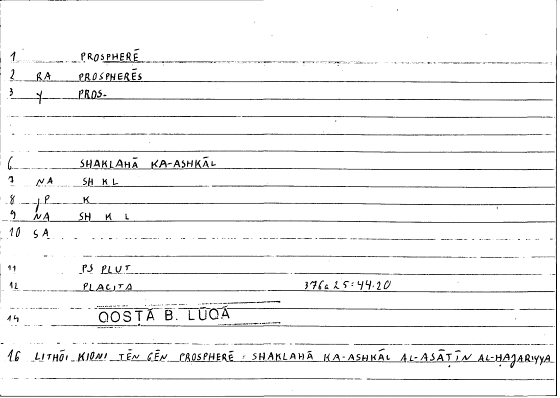 1 PROSPHERĒ
2 RA PROSPHERĒS
3 y PROS-
6 SHAKLAHĀ KA-ASHKĀL
7 NA SH K L
8 jP K
9 NA SH K L
10 SA
11 PS PLUT
12 PLACITA 376a25:44.20
14 QOSṬĀ B. LŪQĀ
16 LITHŌI KIONI TĒN GĒN PROSPHERĒ : SHAKLAHĀ KA-ASHKĀL AL-ASĀṬĪN AL-ḤAJARIYYA